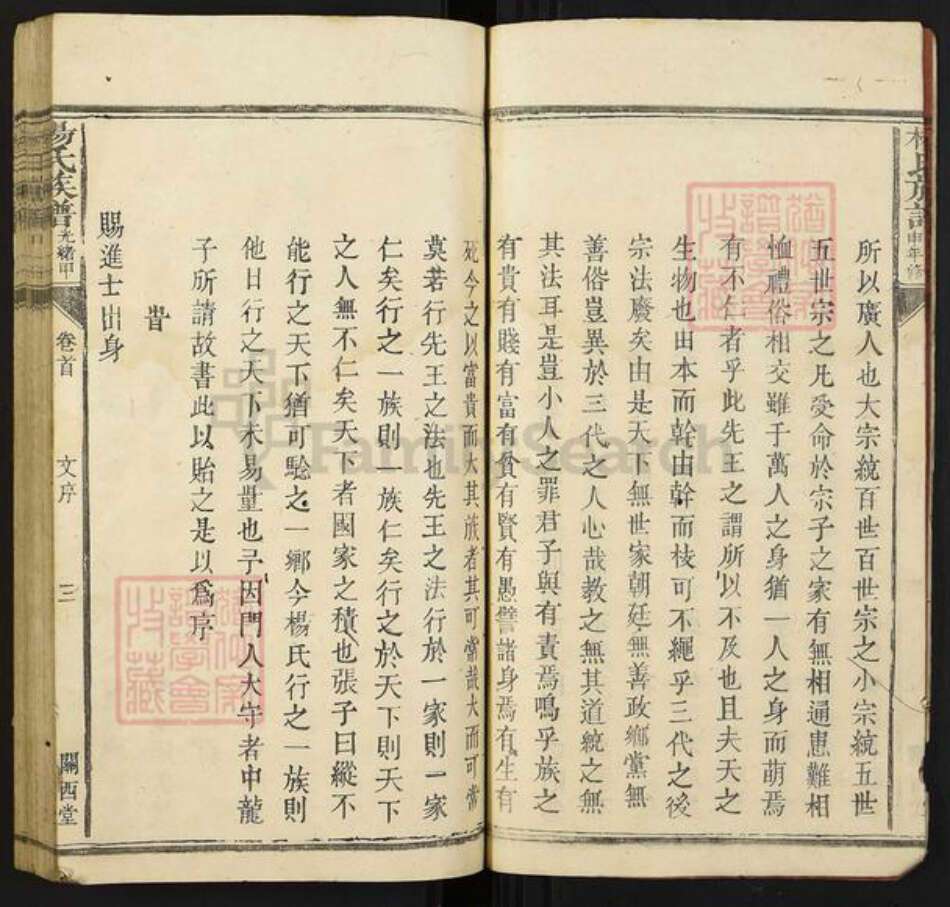 所以廣人也大宗統百世百世宗之小宗統五世
五世宗之凡受命於宗子之家有無相通患難相
恤禮俗相交雖于萬人之身猶一人之身而萌焉
有不仁者乎此先王之謂所以不及也且夫天之
生物也由本而幹由幹而枝可不繩乎三代之後
宗法廢矣由是天下無世家朝廷無善政鄉黨無
善俗豈異於三代之人心哉教之無其道統之無
其法耳是豈小人之罪君子與有責焉嗚乎族之
有貴有賤有富有貧有賢有愚譬諸身焉有生有
死今之以富貴而大其族者其可常哉大而可常
莫若行先王之法也先王之法行於一家則一家
仁矣行之一族則一族仁矣行之於天下則天下
之人無不仁矣天下者國家之積也張子曰縱不
能行之天下猶可驗之一鄉今楊氏行之一族則
他日行之天下未易量也予因門人大守者中龍
子所請故書此以貽之是以為序
旹
賜進士出身
楊氏族譜 光緒甲 卷首 文序 三 關西堂
申年修
FamilySearch